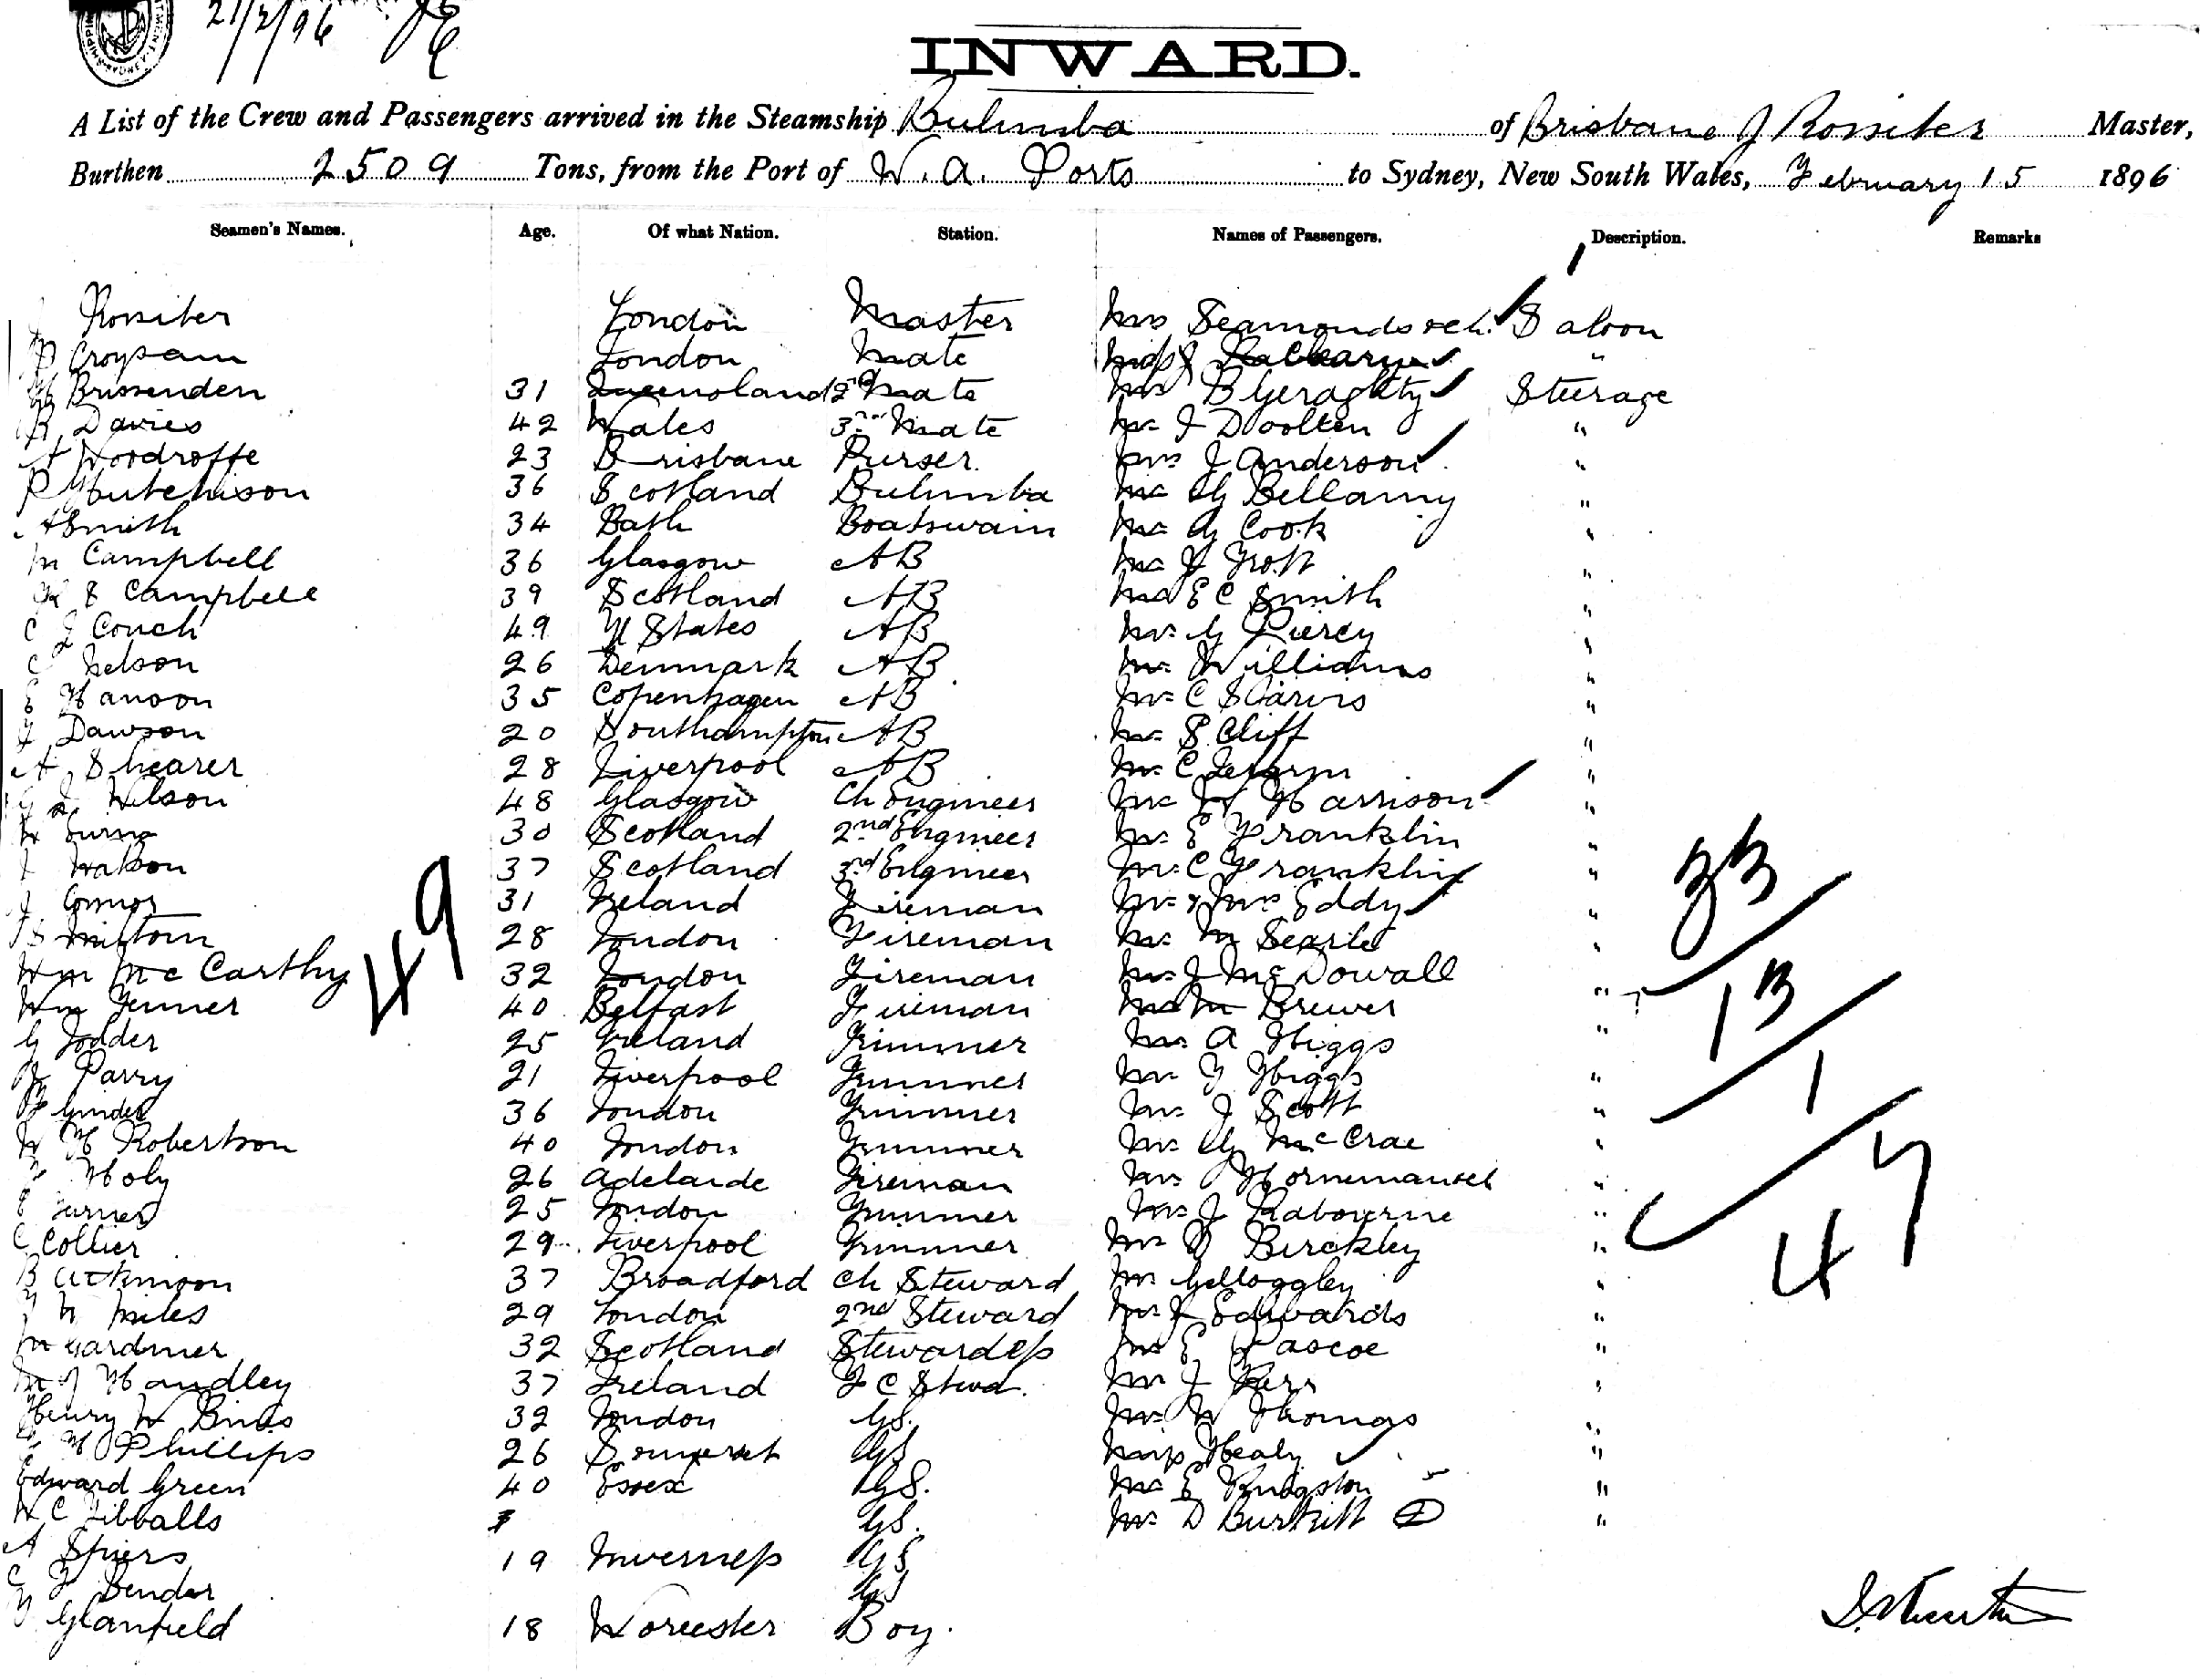 21/2/96
INWARD.
A List of the Crew and Passengers arrived in the Steamship Bulimba of Brisbane J Rossiter Master,
Burthen 2509 Tons, from the Port of W. A. Ports to Sydney, New South Wales, February 15 1896
Seamen's Names. Age. Of what Nation. Station. Names of Passengers. Description. Remarks
Rossiter London Master Mrs Saloon
London Mate "
Brissenden 31 Queensland 2nd Mate B Geraghty Steerage
Davies 42 Wales 3rd Mate Mr J Doolten "
A Woodroffe 23 Brisbane Purser. Mrs J Anderson "
P Hutchison 36 Scotland Bulimba Mr G Bellamy "
A Smith 34 Bath Boatswain Mr G Cook "
M Campbell 36 Glasgow AB Mr J "
S Campbell 39 Scotland AB E C Smith "
C J Couch 49 U States AB Mr G Piercy "
C Nelson 26 Denmark AB Mr Williams "
E Hanson 35 Copenhagen AB Mr C S Jarvis "
J Dawson 20 Southampton AB Mr S Cliff "
A Shearer 28 Liverpool AB Mr C "
Wilson 48 Glasgow Ch Engineer Mr W Harrison "
30 Scotland 2nd Engineer Mr E Franklin "
J Watson 37 Scotland 3rd Engineer Mr C Franklin "
J Connor 31 Ireland Fireman Mr & Mrs Eddy "
28 London Fireman Mr M Searle "
Wm McCarthy 32 London Fireman Mr J McDowall "
Wm Jenner 40 Belfast Fireman Brewer "
G Todder 25 Ireland Trimmer Mr A Higgs "
Parry 21 Liverpool Trimmer Mr F Higgs "
36 London Trimmer Mr J Scott "
W H Robertson 40 London Trimmer Mr G McCrae "
Holy 26 Adelaide Fireman "
E Turner 25 London Trimmer Mr J Rabourne "
C Collier 29 Liverpool Trimmer Birckley "
B Atkinson 37 Broadford Ch Steward "
N Miles 29 London 2nd Steward Mr J Edwards "
M Gardiner 32 Scotland Stewardess E Pascoe "
M J Handley 37 Ireland F C Stwd. Mr J Kerr "
Henry W Binds 32 London GS. Mr W Thomas "
H Phillips 26 Somerset GS Miss Healy "
Edward Green 40 Essex GS. Mr E Kingston "
W C Tibballs GS. Mr D "
A Spiers 19 Inverness GS
C J Bender GS
Glanfield 18 Worcester Boy.
49
33
13
1
47